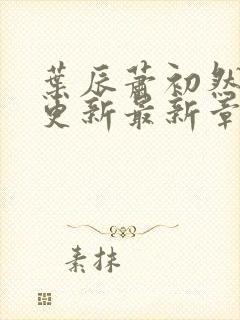 葉辰蕭初然
更新最新章
素抹